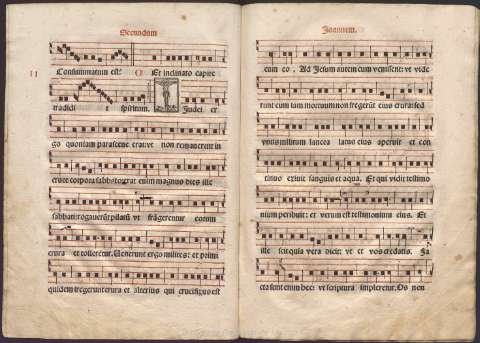 Secundum
Consummatum est. Et inclinato capite
tradidit spiritum. Iudei er
go quoniam parasceve erat: vt non remanerent in
cruce corpora sabbato: erat enim magnus dies ille
sabbati: rogaverūt pilatū vt frāgerentur eorum
crura et tollerentur. Uenerunt ergo milites: et primi
quidem fregerunt crura et alterius qui crucifixus est
Joannem.
cum eo. Ad Jesum autem cum venissent: vt vide
runt eum iam mortuum non fregerūt eius crura: sed
vnus militum lancea latus eius aperuit et con
tinuo exiuit sanguis et aqua. Et qui vidit testimo
nium perhibuit: et verum est testimonium eius. Et
ille scit quia vera dicit: vt et vos credatis. Fa
cta sunt enim hec: vt scriptura impleretur. Os non